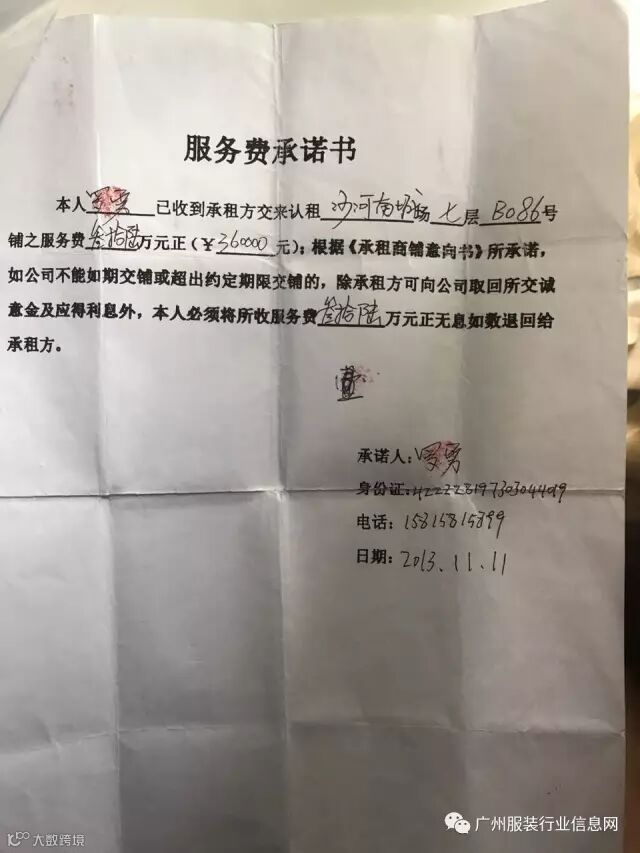 服务费承诺书
本人罗勇已收到承租方交来认租沙河南城场七层B086号
铺之服务费叁拾陆万元正（¥360000元）；根据《承租商铺意向书》所承诺，
如公司不能如期交铺或超出约定期限交铺的，除承租方可向公司取回所交诚
意金及应得利息外，本人必须将所收服务费叁拾陆万元正无息如数退回给
承租方。
承诺人：罗勇
身份证：422228197303044019
电话：15815815899
日期：2013.11.11
大数跨境
广州服装行业信息网